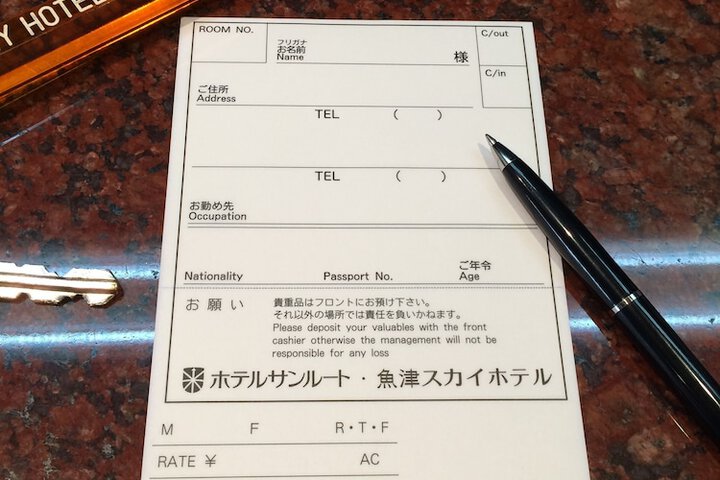 Y HOTEL
ROOM NO.
フリガナ
お名前
Name
様
C/out
C/in
ご住所
Address
TEL ( )
TEL ( )
お勤め先
Occupation
Nationality Passport No. ご年令 Age
お願い
貴重品はフロントにお預け下さい。
それ以外の場所では責任を負いかねます。
Please deposit your valuables with the front
cashier otherwise the management will not be
responsible for any loss
ホテルサンルート・魚津スカイホテル
M F R・T・F
RATE ¥ AC